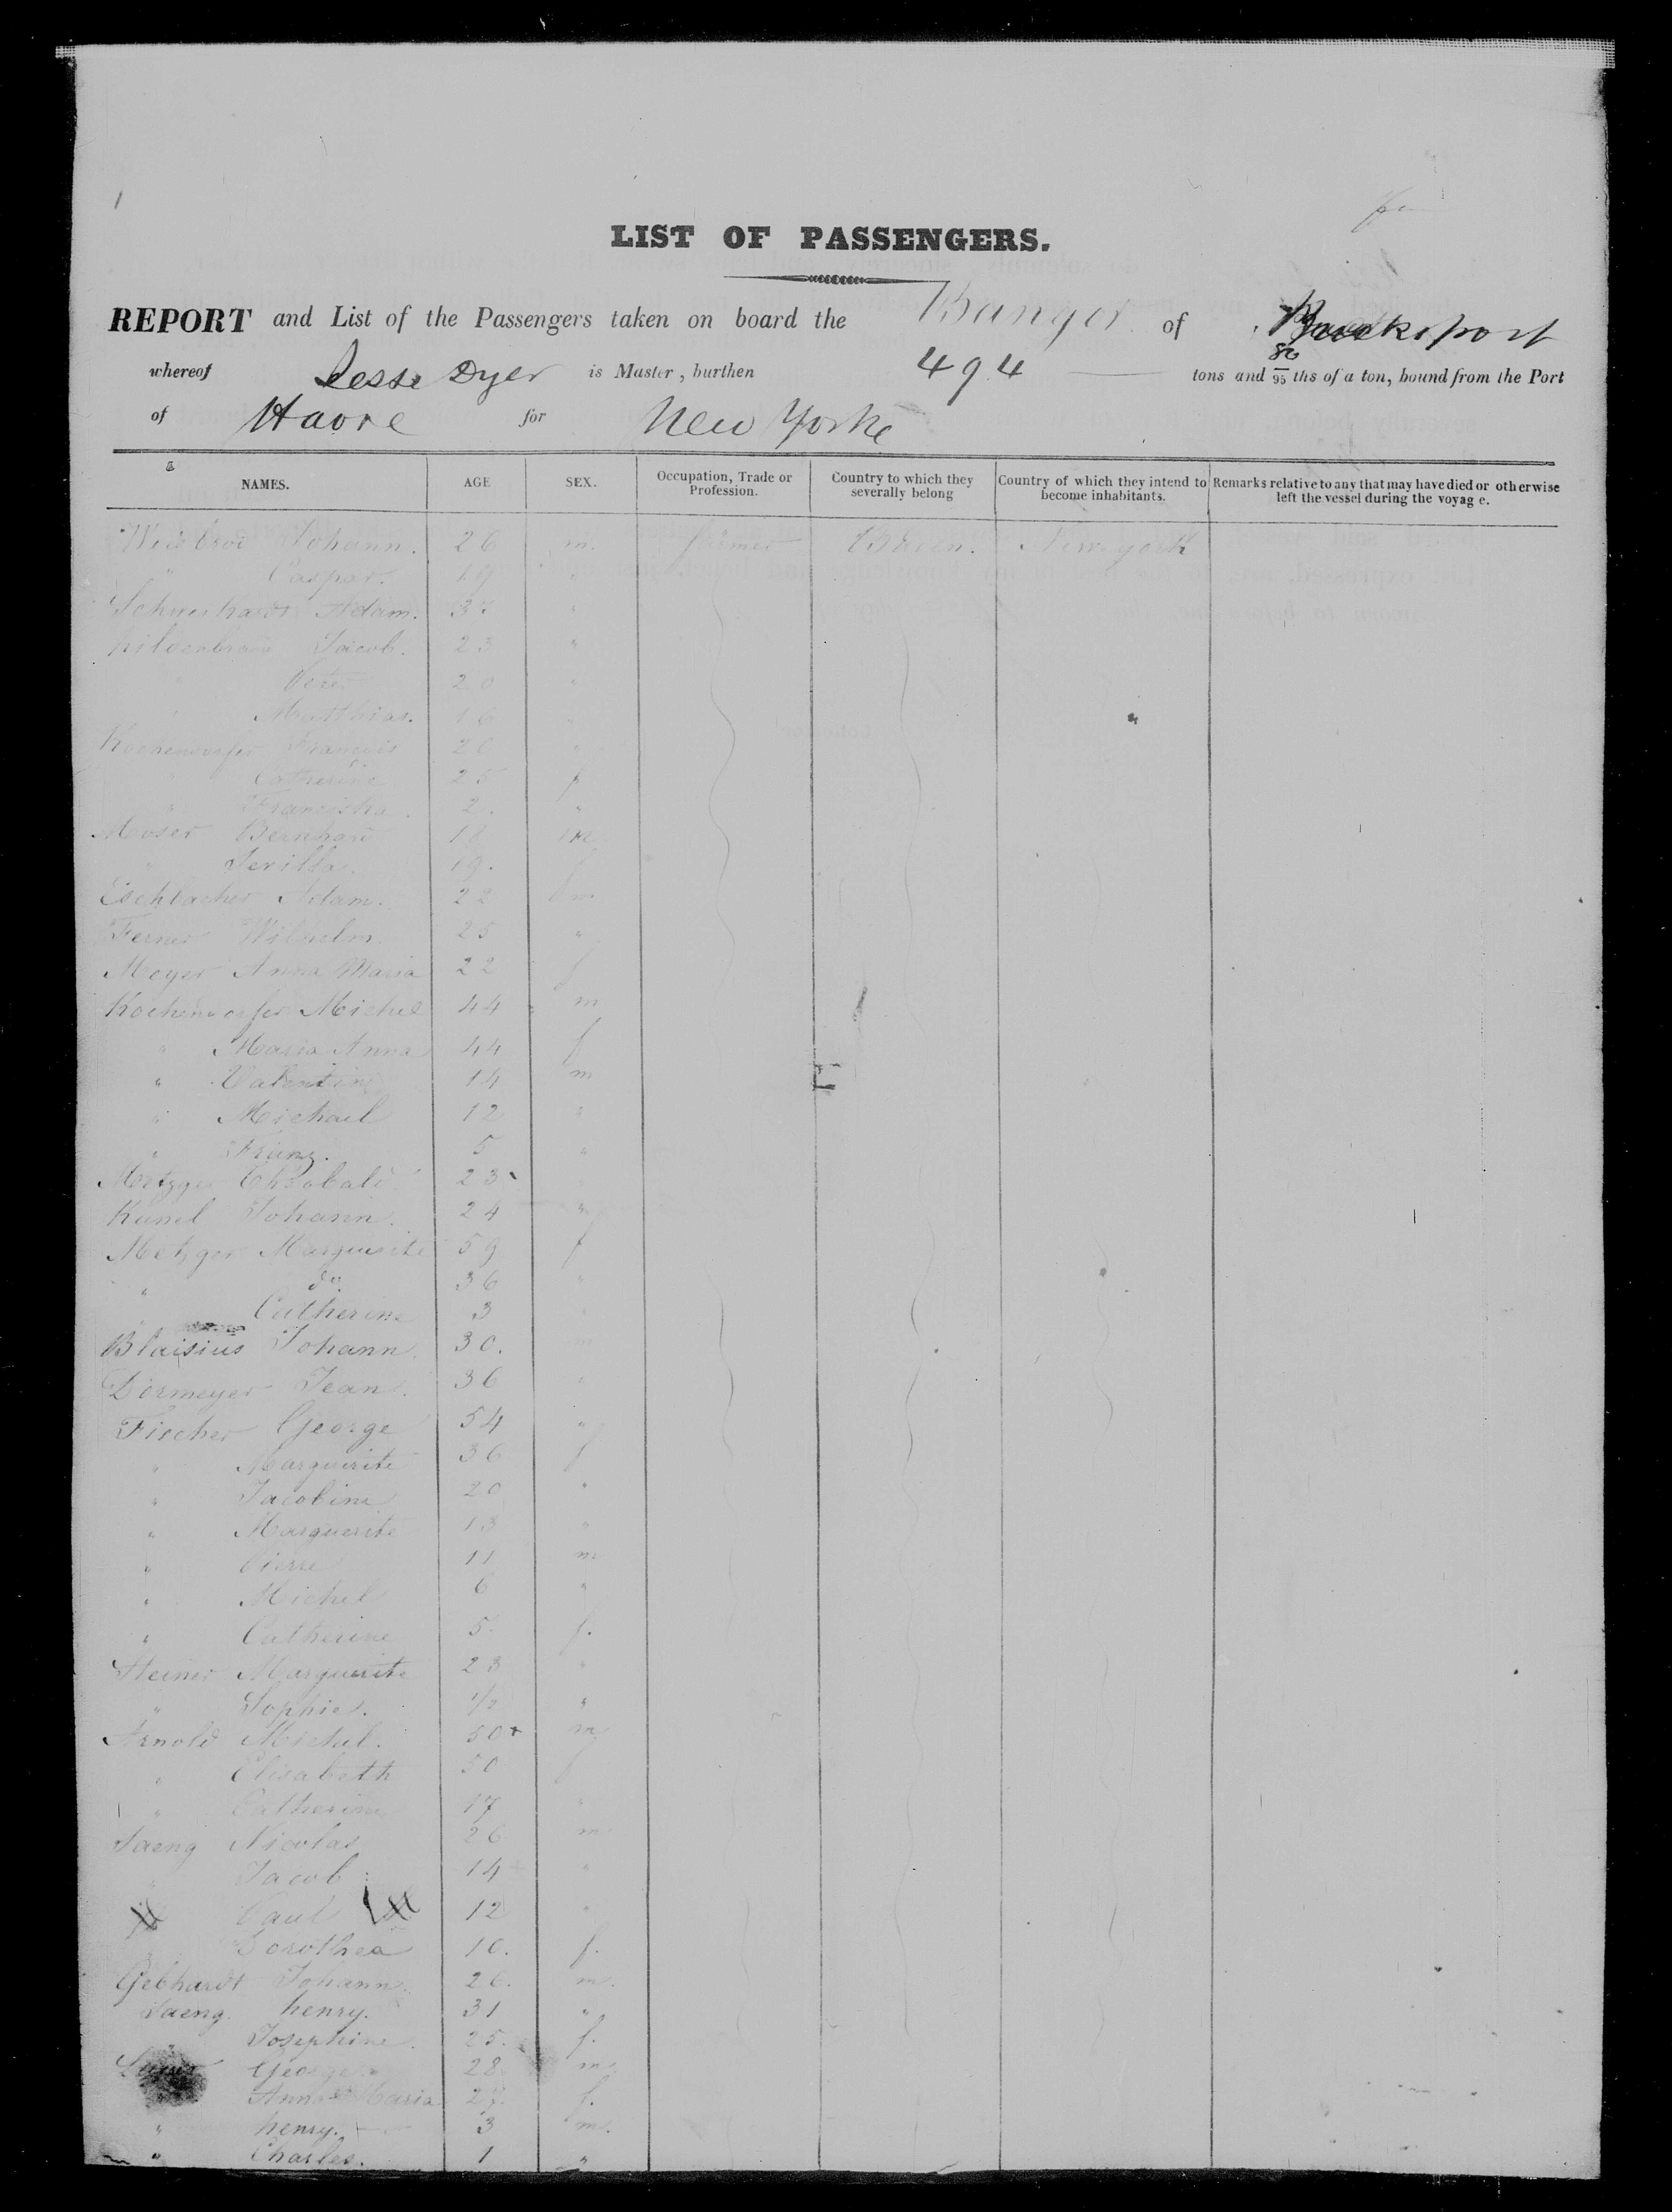 LIST OF PASSENGERS.
REPORT and List of the Passengers taken on board the Bangor of Bucksport
whereof Jesse Dyer is Master, burthen 494 tons and 80/95 ths of a ton, bound from the Port
of Havre for New Yorke
NAMES. AGE SEX. Occupation, Trade or Profession. Country to which they severally belong Country of which they intend to become inhabitants. Remarks relative to any that may have died or otherwise left the vessel during the voyag e.
Weisbrod Johann. 26 m. farmer New york
" Caspar. 19 "
Adam. 37 "
hildenbrand Jacob. 23 "
" Peter 20 "
" Matthias. 16
Kochendorfer Francois 26 "
" Catherine 25 f
" Franciska. 2. "
Moser Bernhard 18 m
" 19. f
Eschbacher Adam. 22 m
Ferner Wilhelm 25 "
Meyer Anna Maria 22 f
Kochendorfer Michel 44 m
" Maria Anna 44 f
" Valentin 14 m
" Michael 12 "
" Franz. 5 "
Metzger 23
Kunel Johann. 24 "
Metzger Marguerite 59 f
" do. 36 "
" Catherine 3
Blaisius Johann. 30. m
Dormeyer Jean. 36 "
Fischer George 54 "
" Marguerite 36 f
" Jacobine 20 "
" Marguerite 13 "
" Pierre 11 m
" Michel 6 "
" Catherine 5. f.
Steiner Marguerite 23 "
" Sophie. 1/2 "
Arnold Michel. 50 + m
" Elisabeth 50 f
" Catherine 17 "
Saeng Nicolas 26 m
" Jacob 14 + "
Paul 12 "
" Dorothea 10. f.
Gebhardt Johann. 26. m.
Saeng henry. 31 "
" Josephine. 25. f.
George 28. m.
Anna Maria 27. f.
" henry. 3 m.
" Charles. 1 "